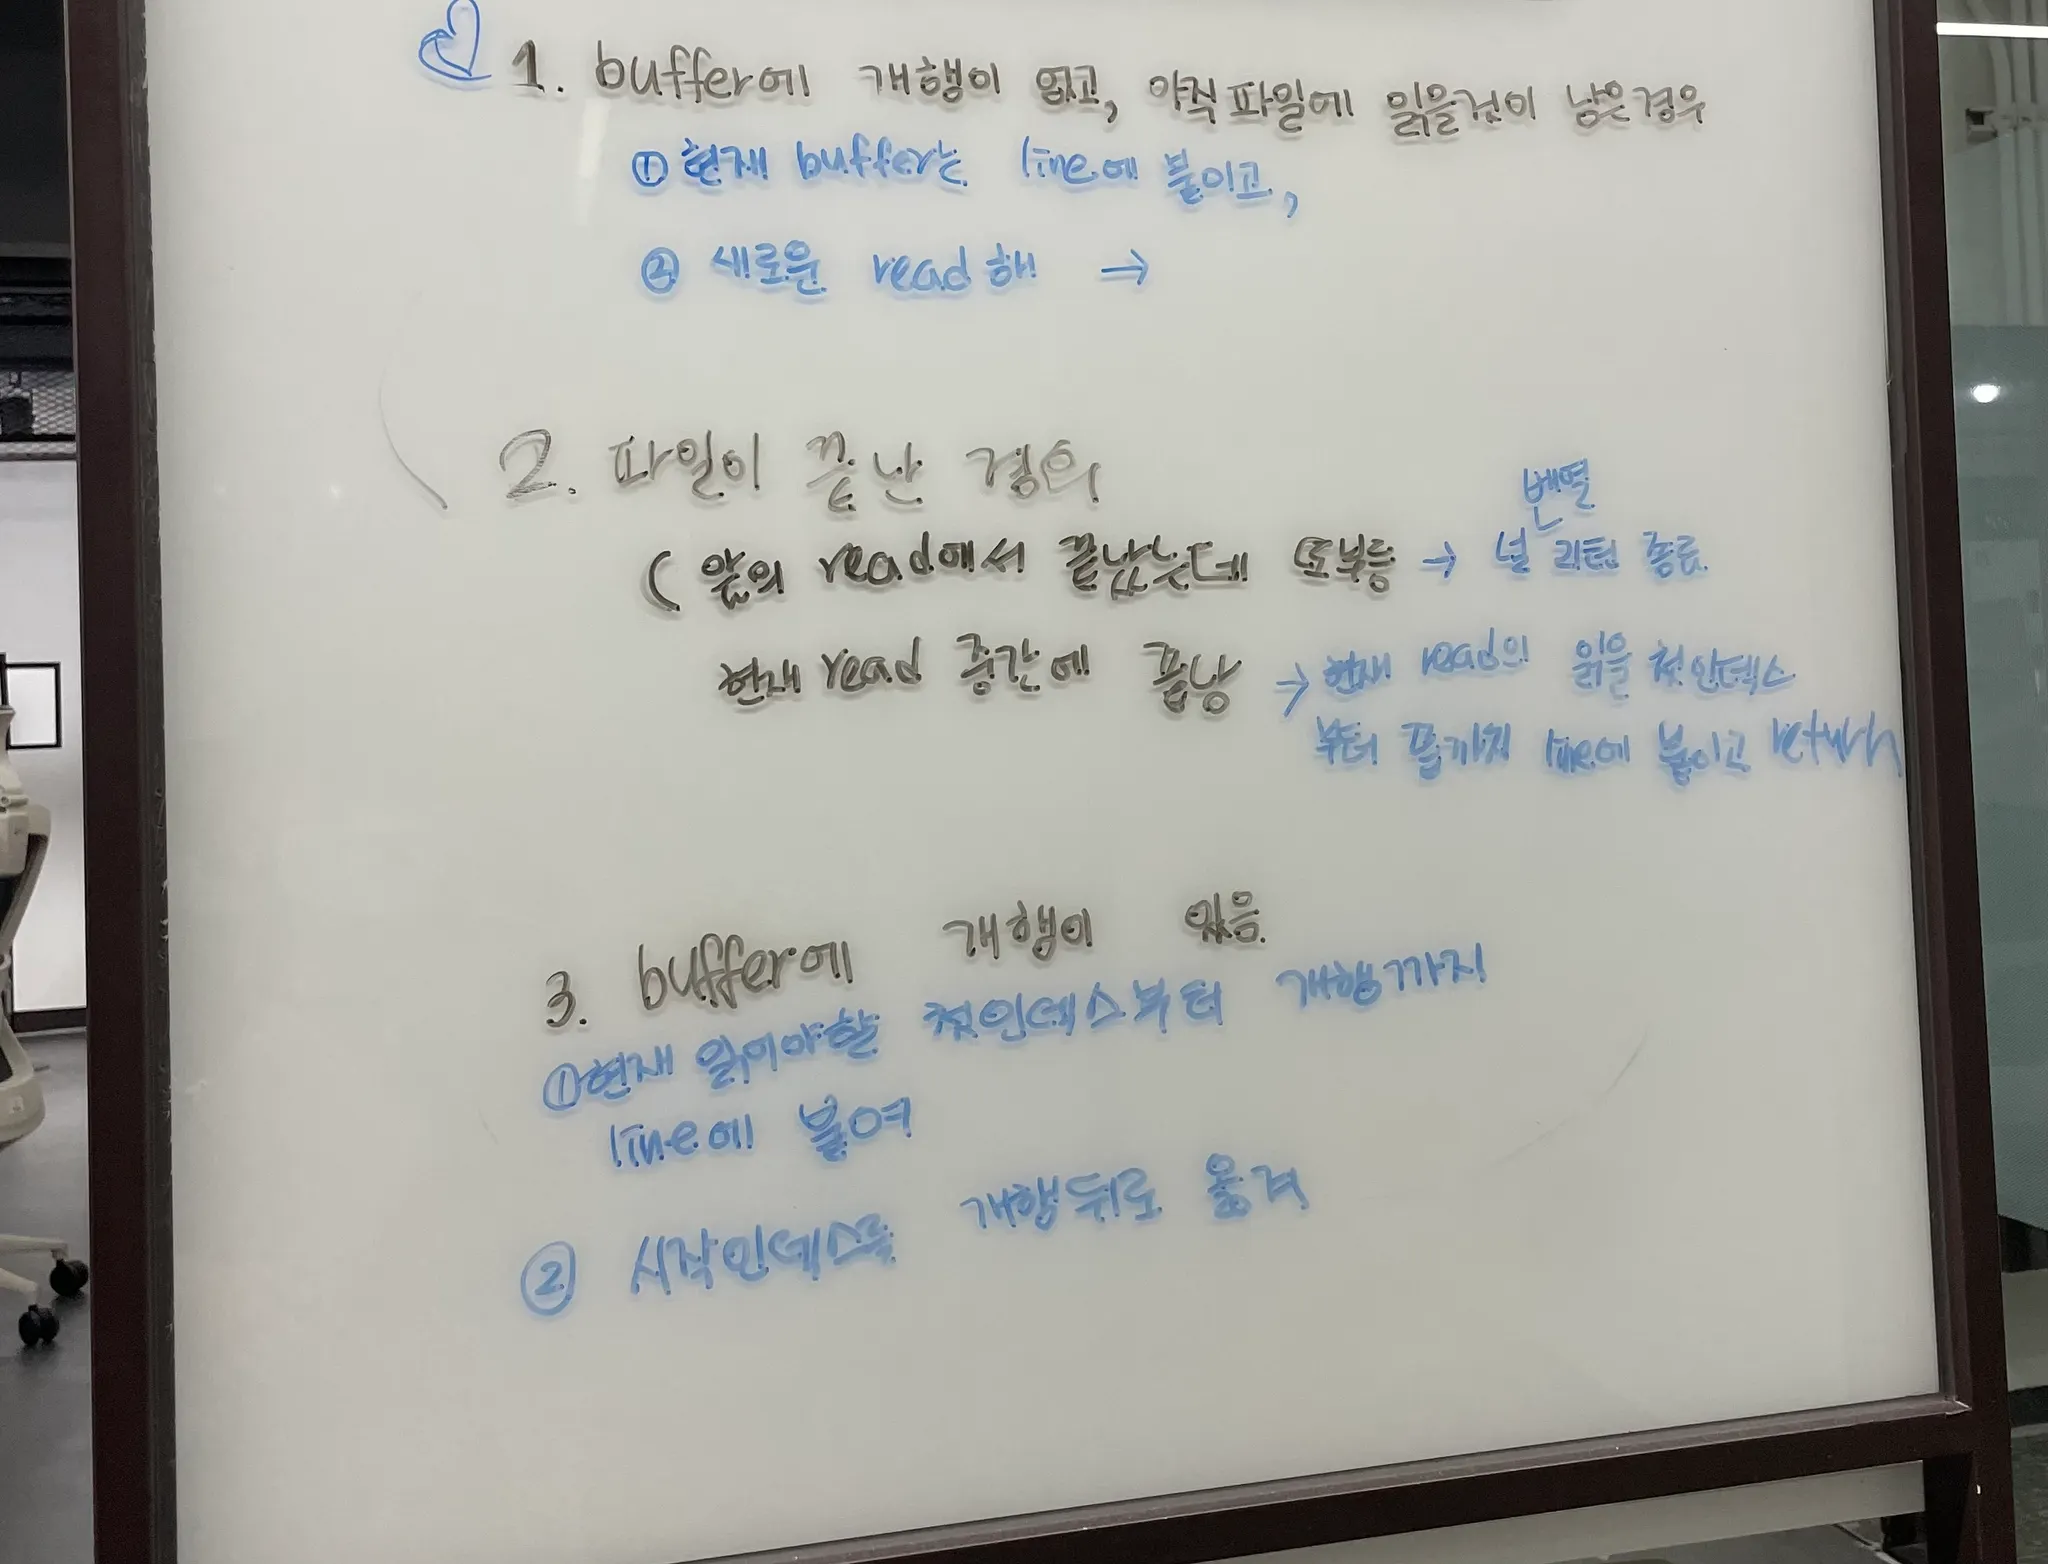 1. buffer에 개행이 없고, 아직 파일에 읽을것이 남은경우
① 현재 buffer는 line에 붙이고,
② 새로운 read 해 →
2. 파일이 끝난 경우
( 앞의 read에서 끝났는데 또부름 → 널 리턴 종료
현재 read 중간에 끝남 → 현재 read의 읽을 첫인덱스
부터 끝까지 line에 붙이고 return
3. buffer에 개행이 있음
① 현재 읽어야할 첫인덱스부터 개행까지
line에 붙여
② 시작인덱스를 개행뒤로 옮겨